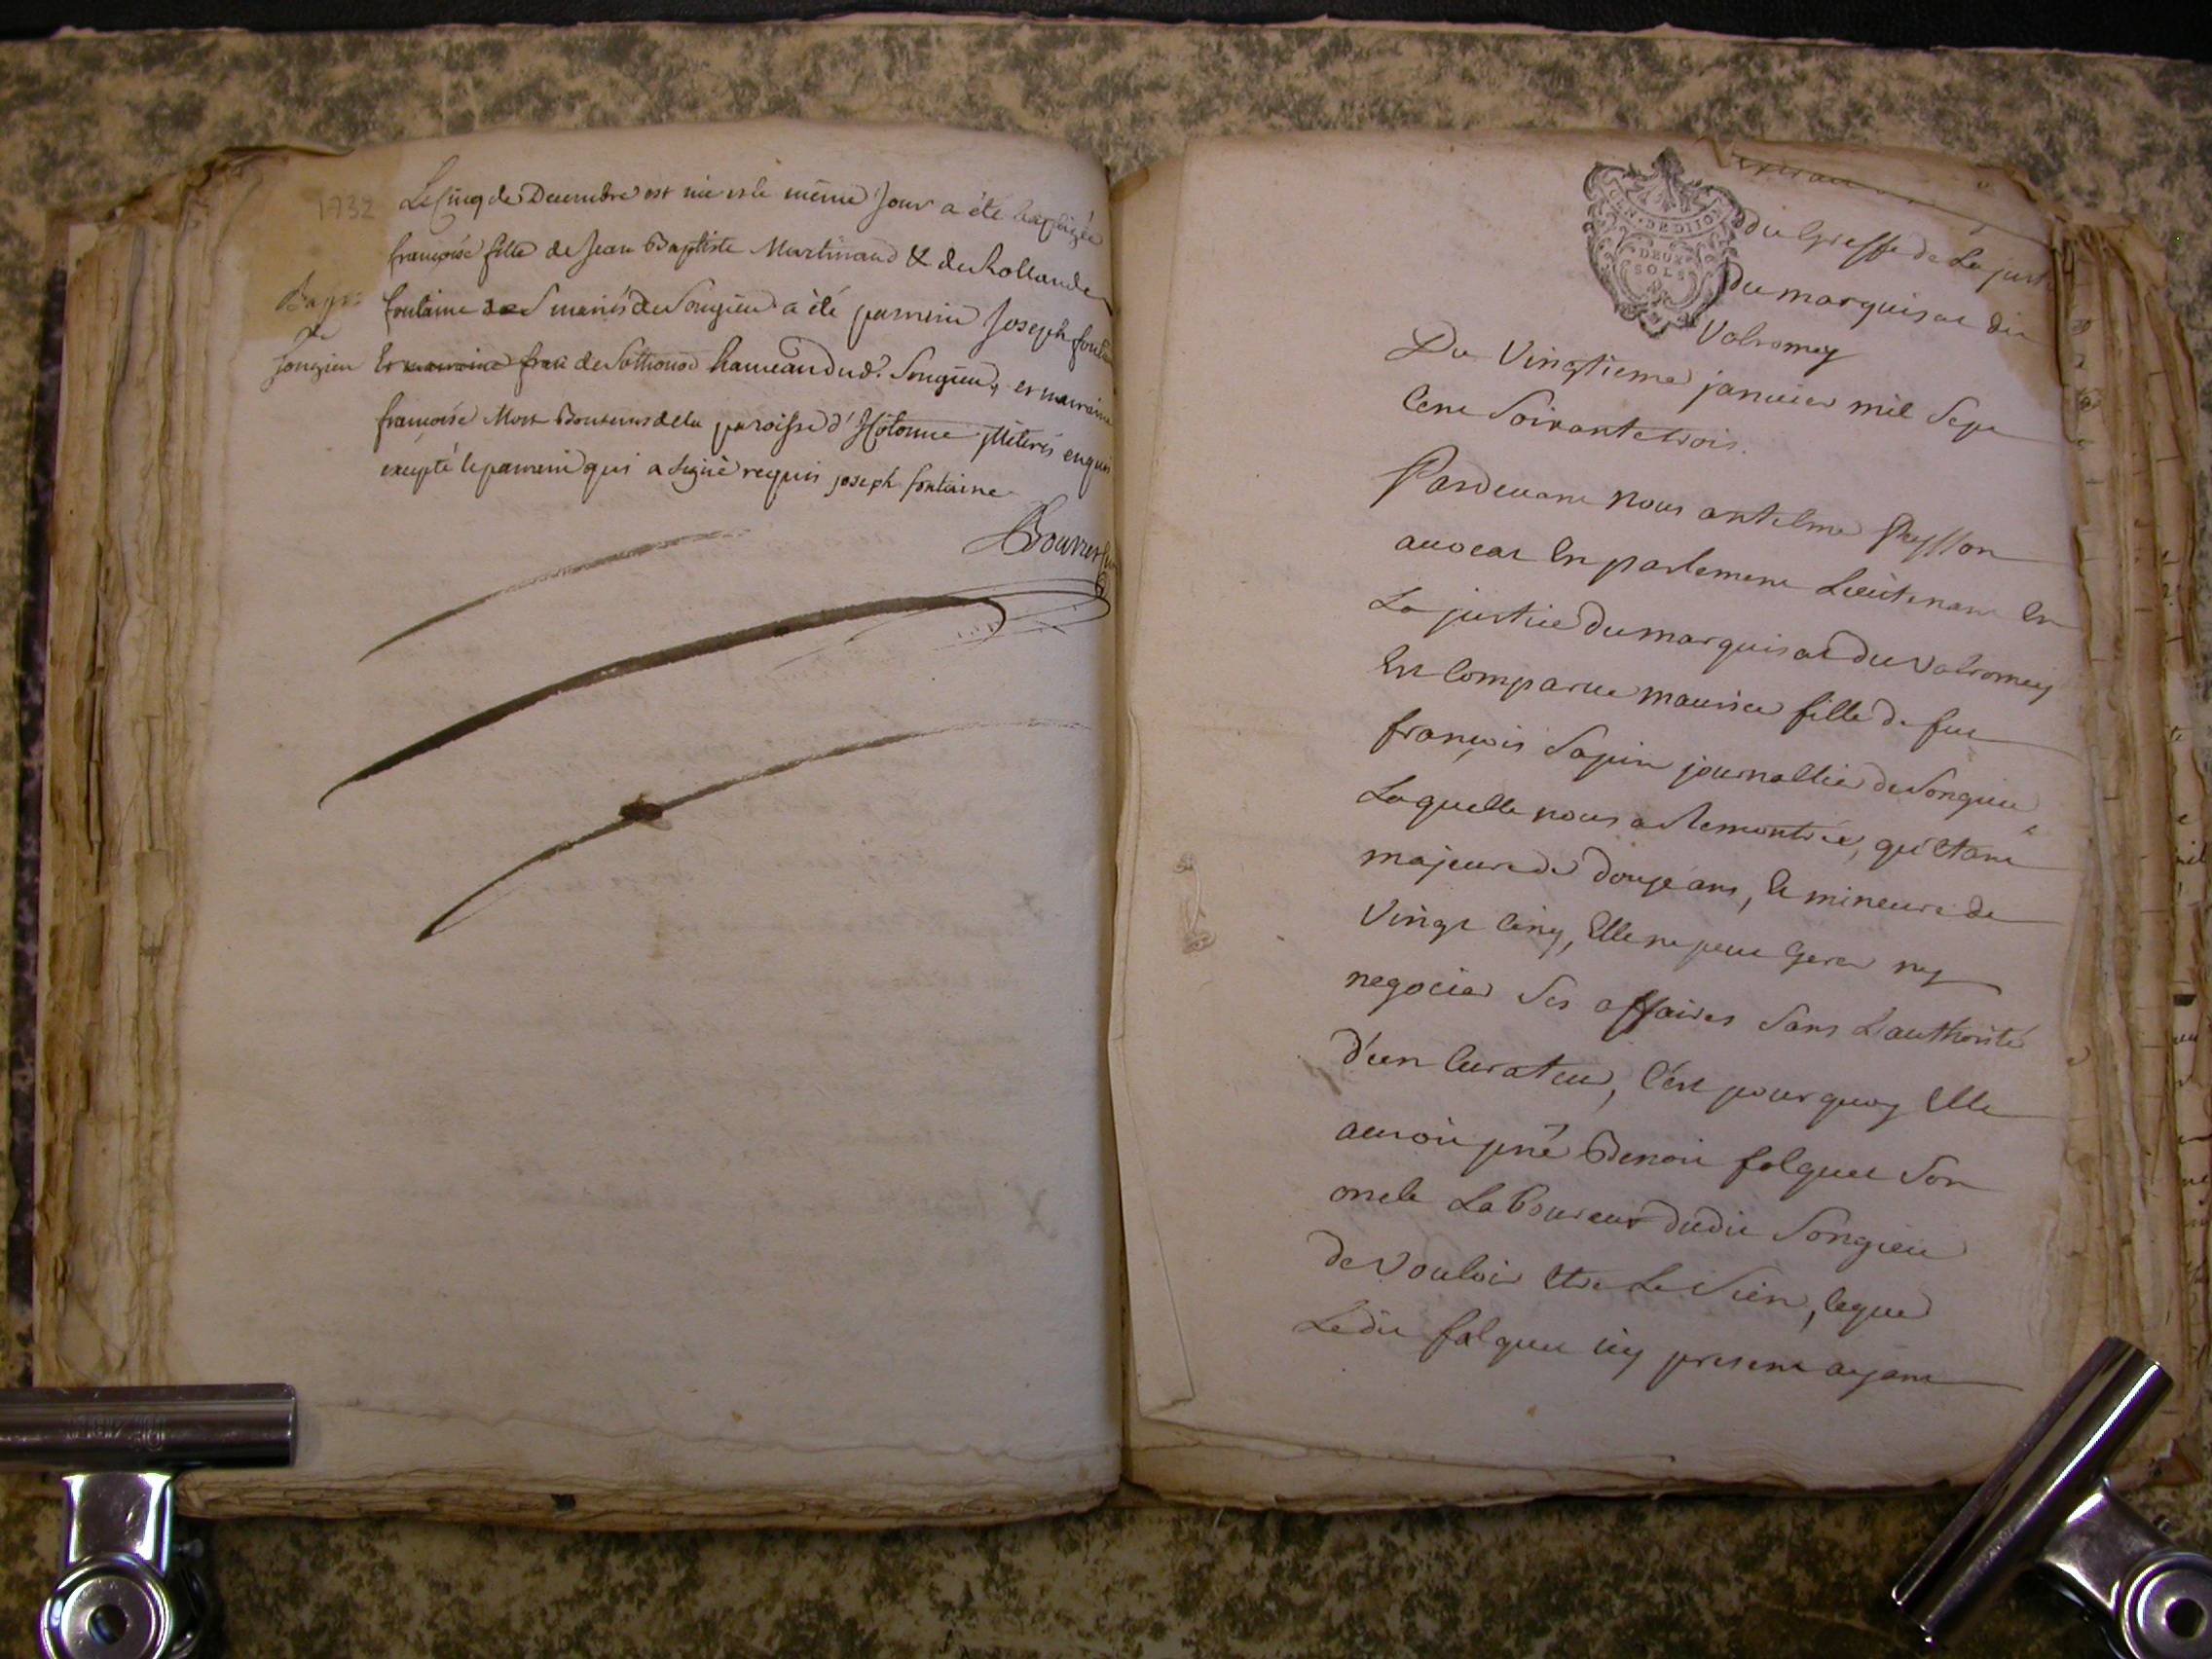 1732
Le cinq de Decembre est née et le même jour a été baptizée
françoise fille de Jean Baptiste Martinand & de Rollande
fontaine mariés de Songieu a été parrein Joseph
de Sothonod hameau dud. Songieu, et marraine
françoise Mont de la paroisse d'Hotonne illiterés enquis
excepté le parrein qui a signé requis joseph fontaine
Songieu
GEN. DE DIJON
DEUX
SOLS
Du Greffe de La just
Du marquisat du
Valromey
Du Vingtieme janvier mil Sept
Cent Soixante trois.
Pardevant Nous antelme Peysson
avocat En parlement Lieutenant En
La justice du marquisat du Valromey
Est Comparue maurice fille de feu
françois Sapin journallier de Songieu
Laquelle nous a Remontrée, qu'etant
majeure de douze ans, Et mineure de
Vingt Cinq, Elle ne peut Gerer ny
negocier Ses affaires Sans L'authorité
d'un Curateur, C'est pourquoy Elle
auroit prié Benoit falquet Son
oncle Laboureur dudit Songieu
de Vouloir Etre Le Sien, lequel
Ledit falquet icy present ayant